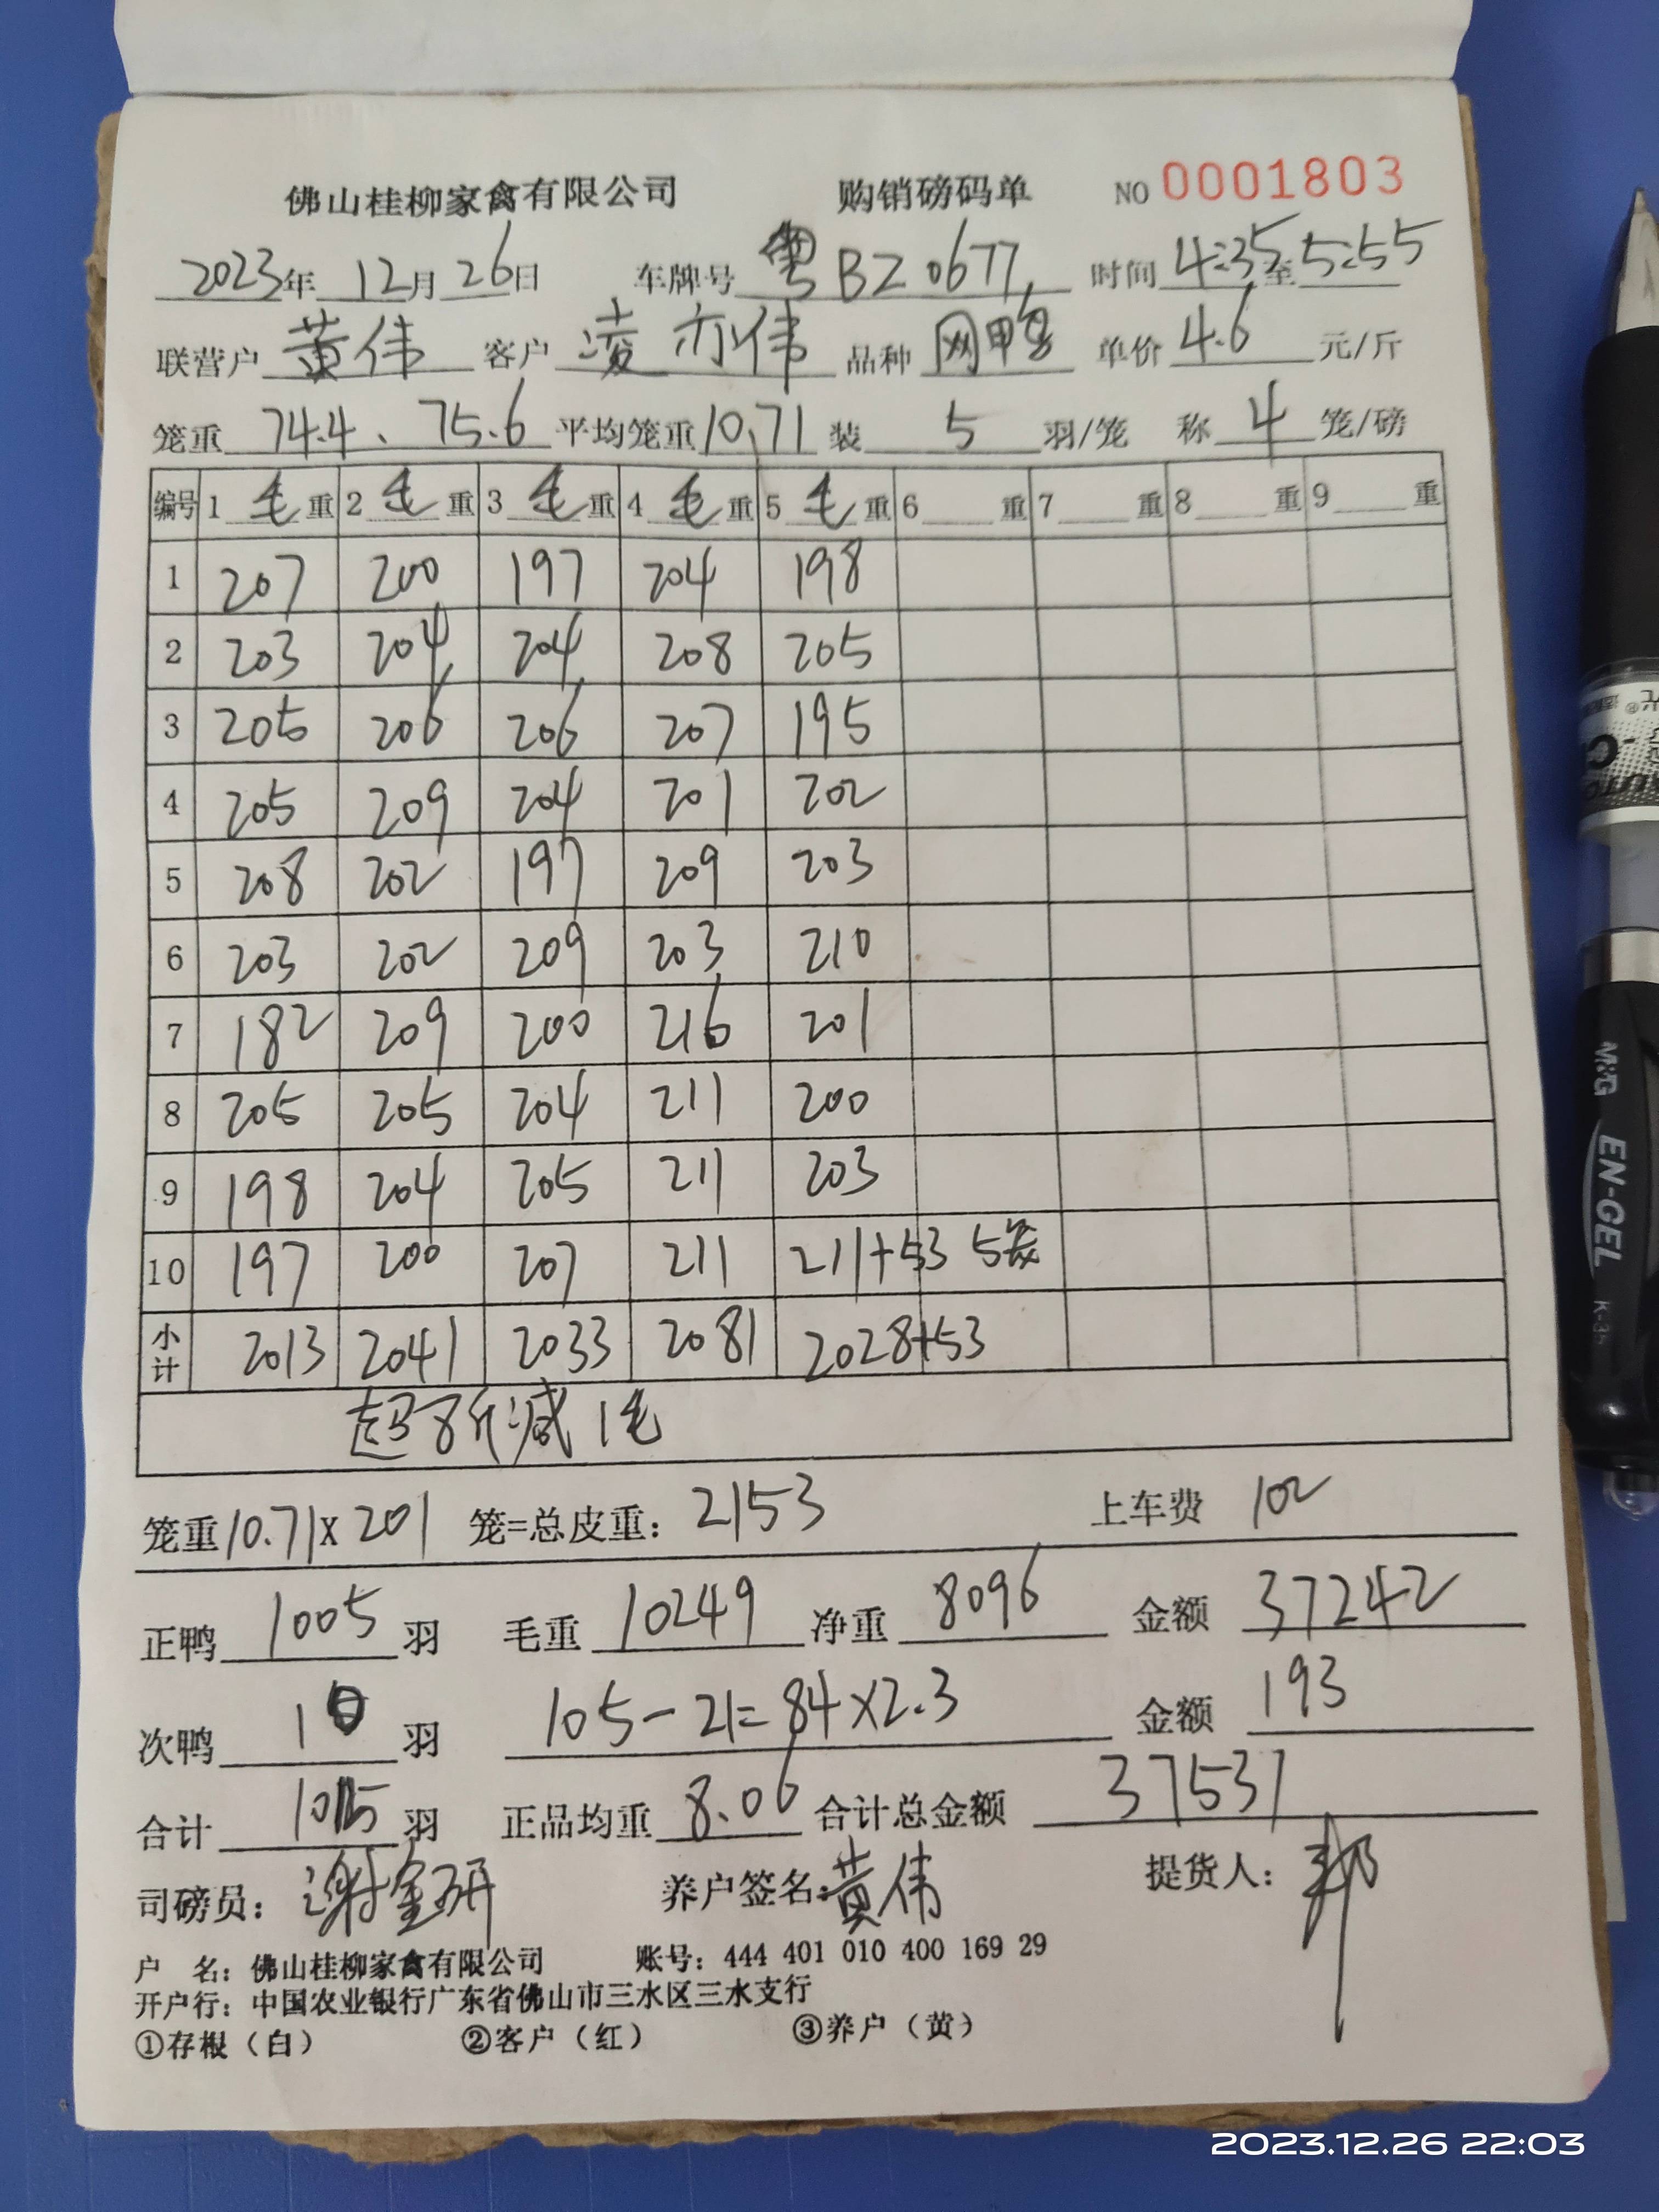 佛山桂柳家禽有限公司 购销磅码单 NO 0001803
2023年 12月 26日 车牌号 粤BZ0677 时间 4:35至5:55
联营户 黄伟 客户 凌亦伟 品种 网鸭 单价 4.6 元/斤
笼重 74.4、75.6 平均笼重 10.71 装 5 羽/笼 称 4 笼/磅
编号 1 毛 重 2 毛 重 3 毛 重 4 毛 重 5 毛 重 6 重 7 重 8 重 9 重
1 207 200 197 204 198
2 203 204 204 208 205
3 205 206 206 207 195
4 205 209 204 201 202
5 208 202 197 209 203
6 203 202 209 203 210
7 182 209 200 216 201
8 205 205 204 211 200
9 198 204 205 211 203
10 197 200 207 211 211+53 5只
小计 2013 2041 2033 2081 2028+53
超8斤减1毛
笼重 10.71 X 201 笼=总皮重: 2153 上车费 102
正鸭 1005 羽 毛重 10249 净重 8096 金额 37242
次鸭 10 羽 105-21=84×2.3 金额 193
合计 1015 羽 正品均重 8.06 合计总金额 37537
司磅员: 谢金研 养户签名: 黄伟 提货人:
户 名: 佛山桂柳家禽有限公司 账号: 444 401 010 400 169 29
开户行: 中国农业银行广东省佛山市三水区三水支行
①存根(白) ②客户(红) ③养户(黄)
M&G EN-GEL K-35
2023.12.26 22:03